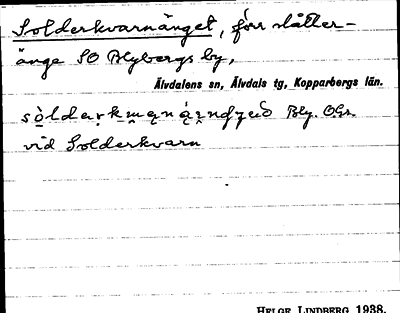 Solderkvarnänget, förr slåtter-
änge SO Blybergs by,
Älvdalens sn, Älvdals tg, Kopparbergs län.
Bly. OGr.
vid Solderkvarn
HELGE LINDBERG 1938.